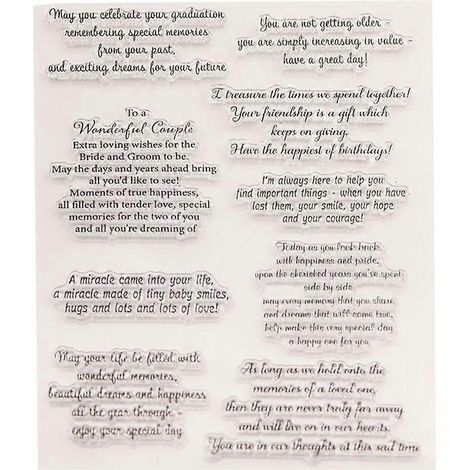 May you celebrate your graduation
remembering special memories
from your past,
and exciting dreams for your future
You are not getting older -
you are simply increasing in value -
have a great day!
I treasure the times we spend together!
Your friendship is a gift which
keeps on giving.
Have the happiest of birthdays!
To a
Wonderful Couple
Extra loving wishes for the
Bride and Groom to be.
May the days and years ahead bring
all you'd like to see!
Moments of true happiness,
all filled with tender love, special
memories for the two of you
and all you're dreaming of
I'm always here to help you
find important things - when you have
lost them, your smile, your hope
and your courage!
Today as you look back
with happiness and pride,
upon the cherished years you've spent
side by side
may every memory that you share
and dreams that will come true,
help make this very special day
a happy one for you
A miracle came into your life,
a miracle made of tiny baby smiles,
hugs and lots and lots of love!
May your life be filled with
wonderful memories,
beautiful dreams and happiness
all the year through -
enjoy your special day
As long as we hold onto the
memories of a loved one,
then they are never truly far away
and will live on in our hearts.
You are in our thoughts at this sad time